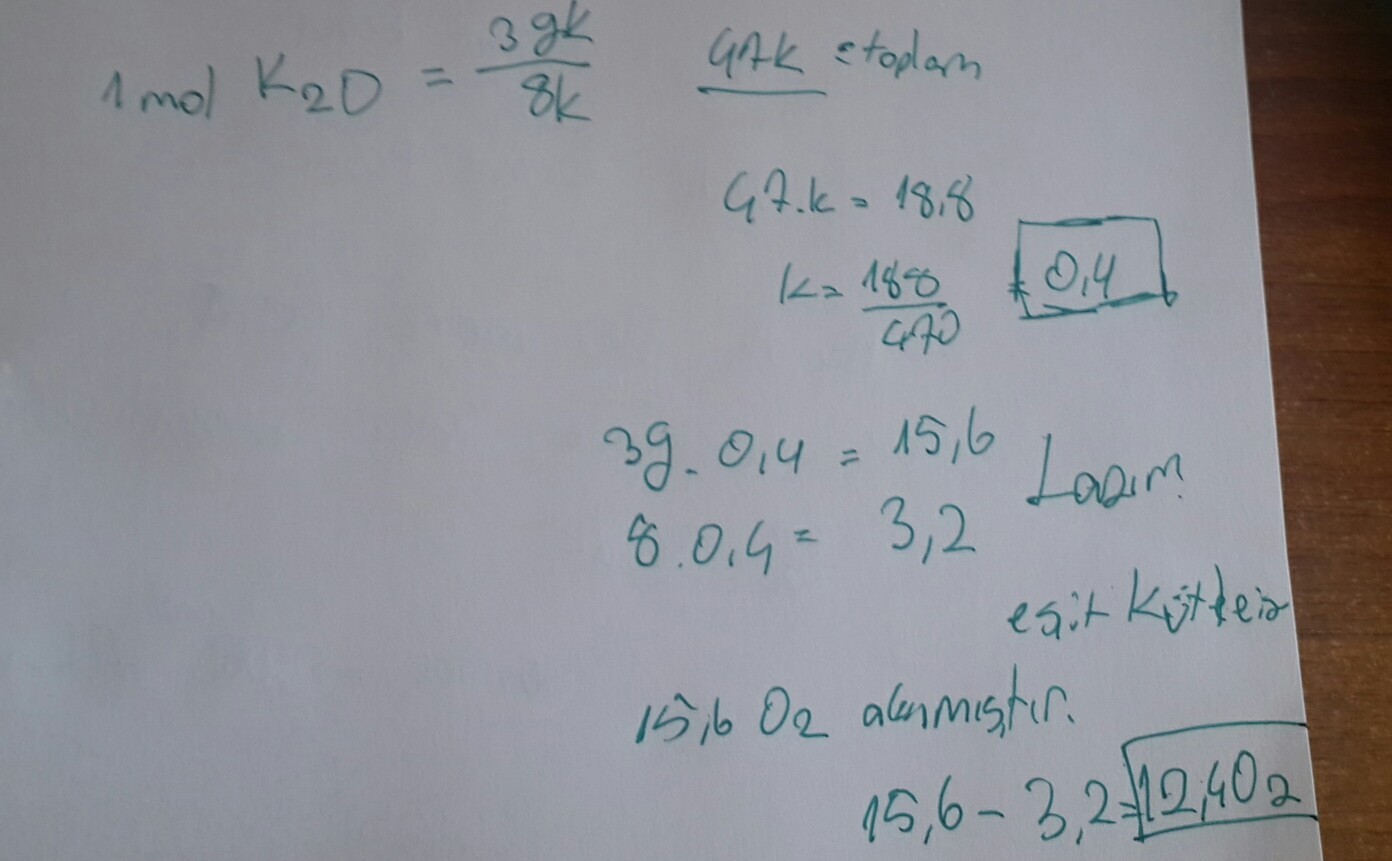 1 mol K2O = 39k/8k 47k = toplam
47.k = 18,8
k = 188/470 = 0,4
39. 0,4 = 15,6 Lazım
8.0,4 = 3,2
eşit kütlede
15,6 O2 alınmıştır.
15,6 - 3,2 = 12,4 O2